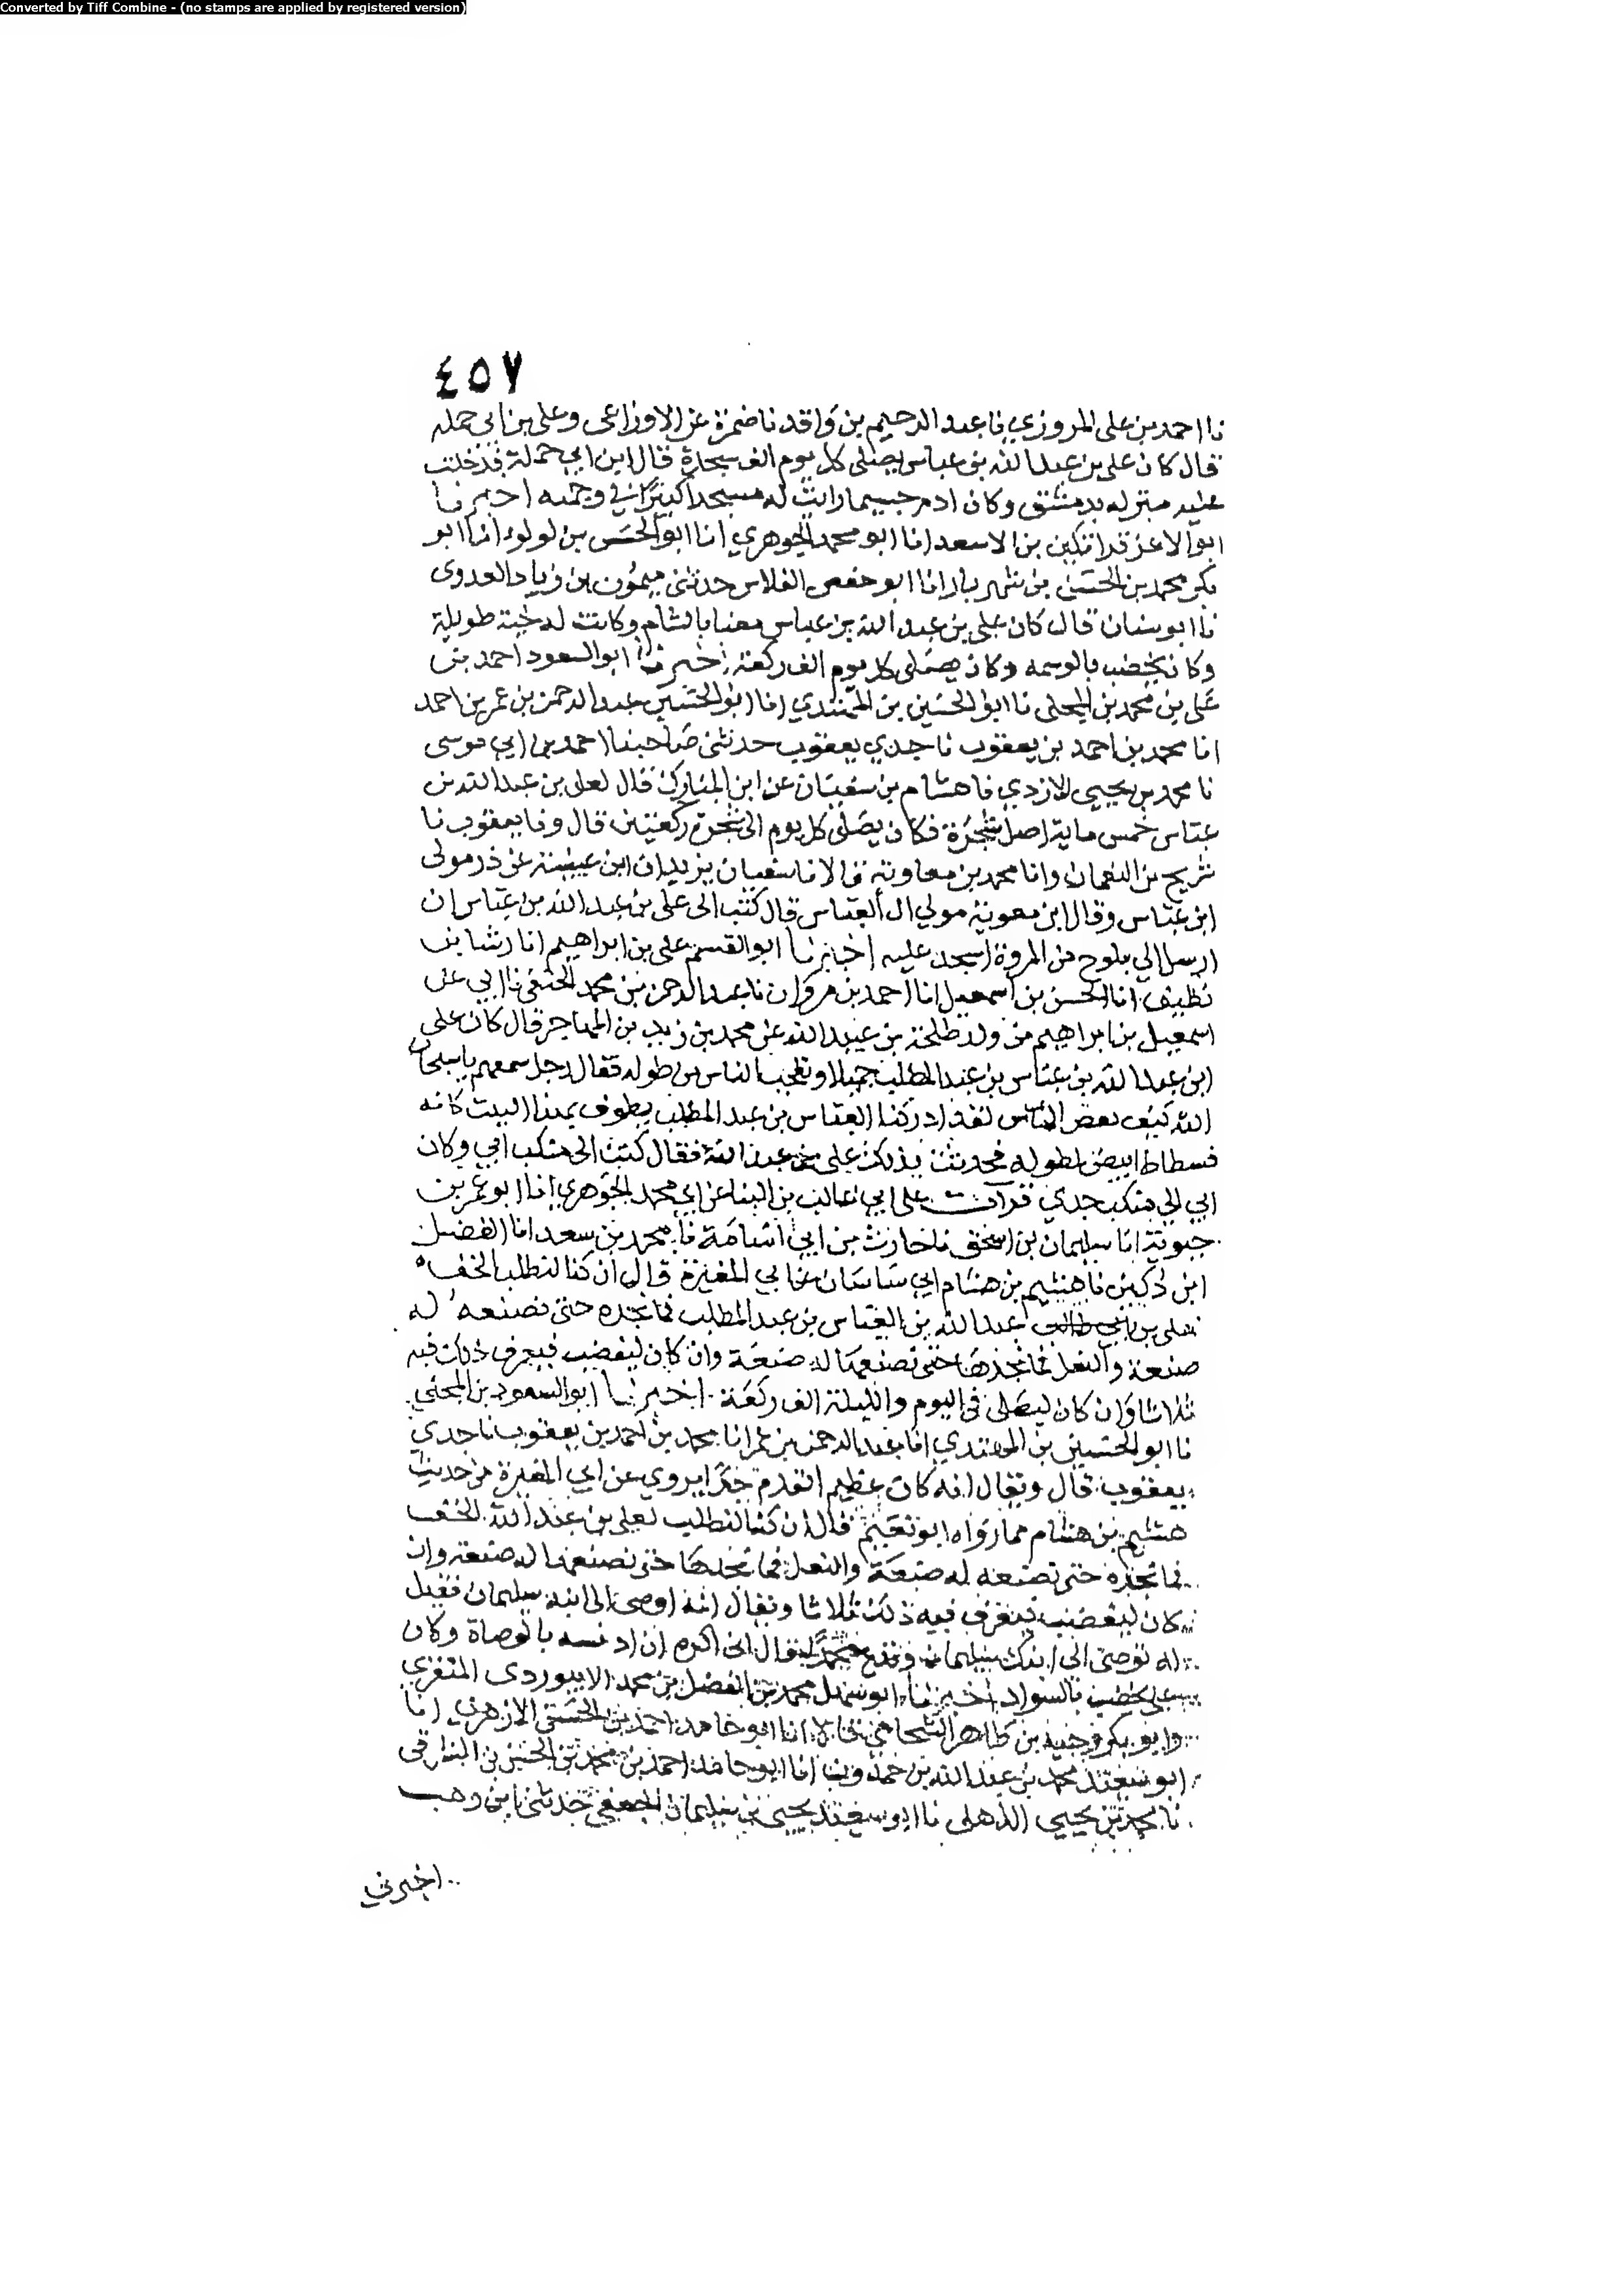 Converted by Tiff Combine - (no stamps are applied by registered version)
٤٥٧
نا احمد بن علي المروزي نا عبد الرحيم بن واقد نا ضمرة عن الاوزاعي وعلي بن ابي حمله
قال كان علي بن عبد الله بن عباس يصلي كل يوم الف سجدة قال ابن ابي حملة فدخلت
عليه منزله بدمشق وكان ادم جسيما رايت له مسجدا كبيرا في وجهه اخبرنا
ابو الاعز قراتكين بن الاسعد انا ابو محمد الجوهري انا ابو الحسن بن لولو انا ابو
بكر محمد بن الحسين بن شهريار انا ابو حفص الفلاس حدثني ميمون بن زياد العدوي
نا ابو سنان قال كان علي بن عبد الله بن عباس معنا بالشام وكانت له لحية طويلة
وكان يخضب بالوسمه وكان يصلي كل يوم الف ركعة اخبرنا ابو السعود احمد بن
علي بن محمد بن المجلي نا ابو الحسين بن المهتدي انا ابو الحسين عبد الرحمن بن عمر بن احمد
انا محمد بن احمد بن يعقوب نا جدي يعقوب حدثني صاحبنا احمد بن ابي موسى
نا محمد بن يحيى الازدي نا هشام بن سفيان عن ابن المبارك قال لعلي بن عبد الله بن
عباس خمس ماية اصل شجرة فكان يصلي كل يوم الى شجرة ركعتين قال ونا يعقوب نا
شريح بن النعمان وانا محمد بن معاوية قالا نا سفيان يريدان ابن عيينة عن ذر مولى
ابن عباس وقال ابن معوية مولى ال العباس قال كتب الى علي بن عبد الله بن عباس ان
ارسل الي بلوح من المروة اسجد عليه اخبرنا ابو القسم علي بن ابراهيم انا رشا بن
نظيف انا الحسن بن اسمعيل انا احمد بن مروان نا عبد الرحمن بن محمد الحنفي نا ابي عن
اسمعيل بن ابراهيم من ولد طلحة بن عبيد الله عن محمد بن زيد بن المهاجر قال كان علي
ابن عبد الله بن عباس بن عبد المطلب جميلا وتعجب الناس من طوله فقال رجل سمعهم يا سبحان
الله كيف نقص الناس لقد ادركنا العباس بن عبد المطلب يطوف بهذا البيت كانه
فسطاط ابيض لطوله فحدثت بذلك علي بن عبد الله فقال كنت الى منكب ابي وكان
ابي الى منكب جدي قرات على ابي غالب بن البنا عن ابي محمد الجوهري انا ابو عمر بن
حيوية انا سليمان بن اسحق نا حارث بن ابي اسامة نا محمد بن سعد انا الفضل
ابن دكين نا هشيم بن هشام ابي ساسان عن ابي المغيرة قال ان كنا لنطلب الخف
لعلي بن عبد الله بن العباس بن عبد المطلب فما نجده حتى نصنعه له
صنعة والنعل فما نجدها حتى نصنعها له صنعة وان كان ليغضب فيعرف ذلك فيه
ثلاثا وان كان ليصلي في اليوم والليلة الف ركعة اخبرنا ابو السعود بن المجلي
نا ابو الحسين بن المهتدي انا عبد الرحمن بن عمر انا محمد بن احمد بن يعقوب نا جدي
يعقوب قال ويقال انه كان عظيم القدم جدا يروي عن ابي المغيرة من حديث
هشيم بن هشام مما رواه ابو نعيم قال ان كنا لنطلب لعلي بن عبد الله الخف
فما نجده حتى نصنعه له صنعة والنعل فما نجدها حتى نصنعها له صنعة وان
كان ليغضب فيعرف فيه ذلك ثلاثا ويقال انه اوصى الى ابنه سليمان فقيل
له توصي الى ابنك سليمان وتدع محمدا فقال اني اكره ان ادنسه بالوصاة وكان
علي يخضب بالسواد اخبرنا ابو سهل محمد بن الفضل بن محمد الابيوردي المقري
وابو بكر وجيه بن طاهر الشحامي قالا انا ابو حامد احمد بن الحسن الازهري انا
ابو سعيد محمد بن عبد الله بن حمدون انا ابو حامد احمد بن محمد بن الحسن بن الشرقي
نا محمد بن يحيى الذهلي نا ابو سعيد يحيى بن سليمان الجعفي حدثني ابن وهب
اخبرني